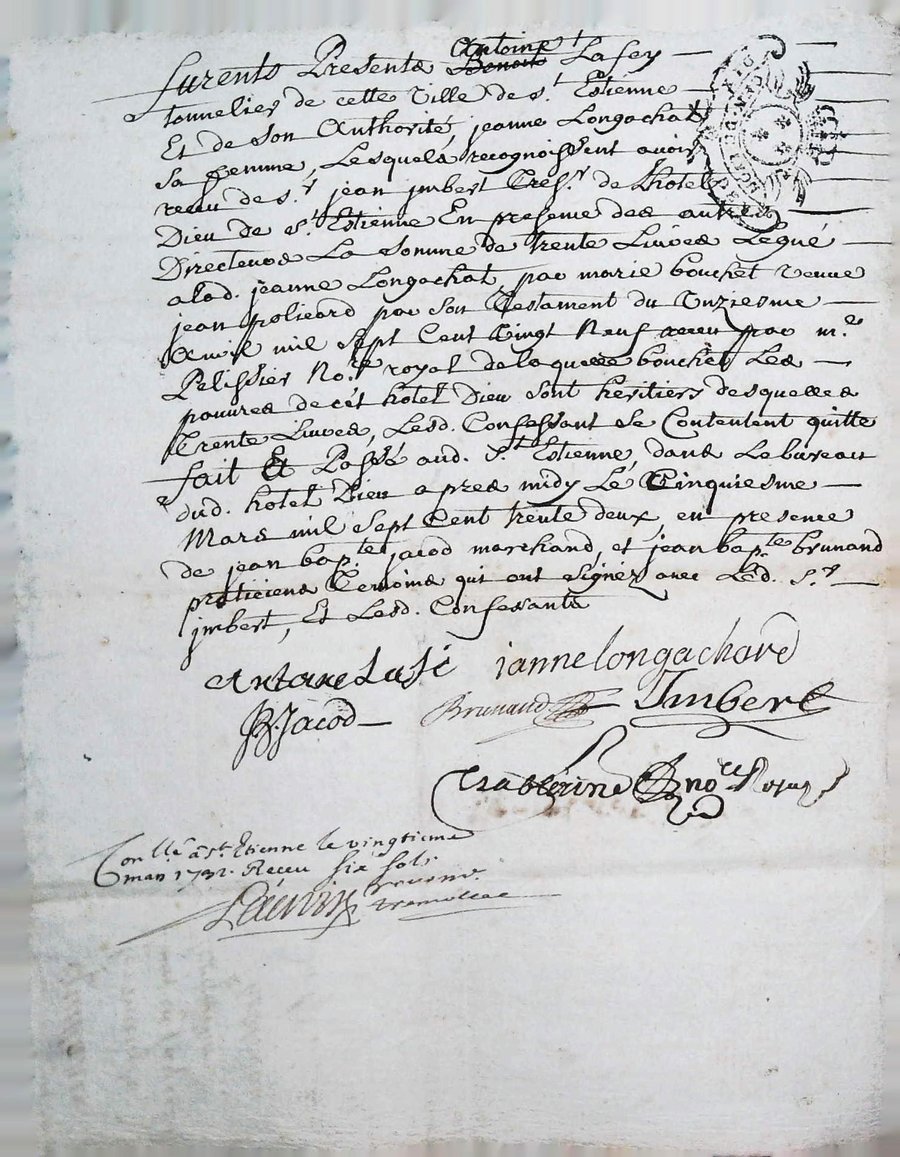 Furents Presents Antoine Benoit Lafey
tonnelier de cette Ville de st Estienne
Et de son Authorité, jeanne Longachat
sa femme, Lesquels recognoissent avoir
receu de sr jean jmbert Tresr. de Lhotel
Dieu de st Estienne En presence des autres
Directeurs La somme de trente Livres Legué
alad. jeanne Longachat, par marie bouchet veuve
jean policard par son Testament du Unziesme
Avril mil sept Cent Vingt Neuf receu par me
Pelissier Nore royal de laquelle bouchet Les
pauvres de cet hotel Dieu sont heritiers desquelles
Trente Livres, Lesd. Confessant se Contentent quitte
fait Et Passé aud. St Estienne, dans Le bureau
dud. hotel Dieu apres midy Le Cinquiesme
Mars mil sept Cent trente deux, en presence
de jean bapte. jacod marchand, et jean bapte. brunand
praticiens Temoins qui ont signez avec Led. sr.
jmbert, Et Lesd. Confessants
ianne longachard
JB. Jacod Brunand Imbert
nore Royal
Conllé à St. Etienne le vingtieme
mars 1732. Receu six sols